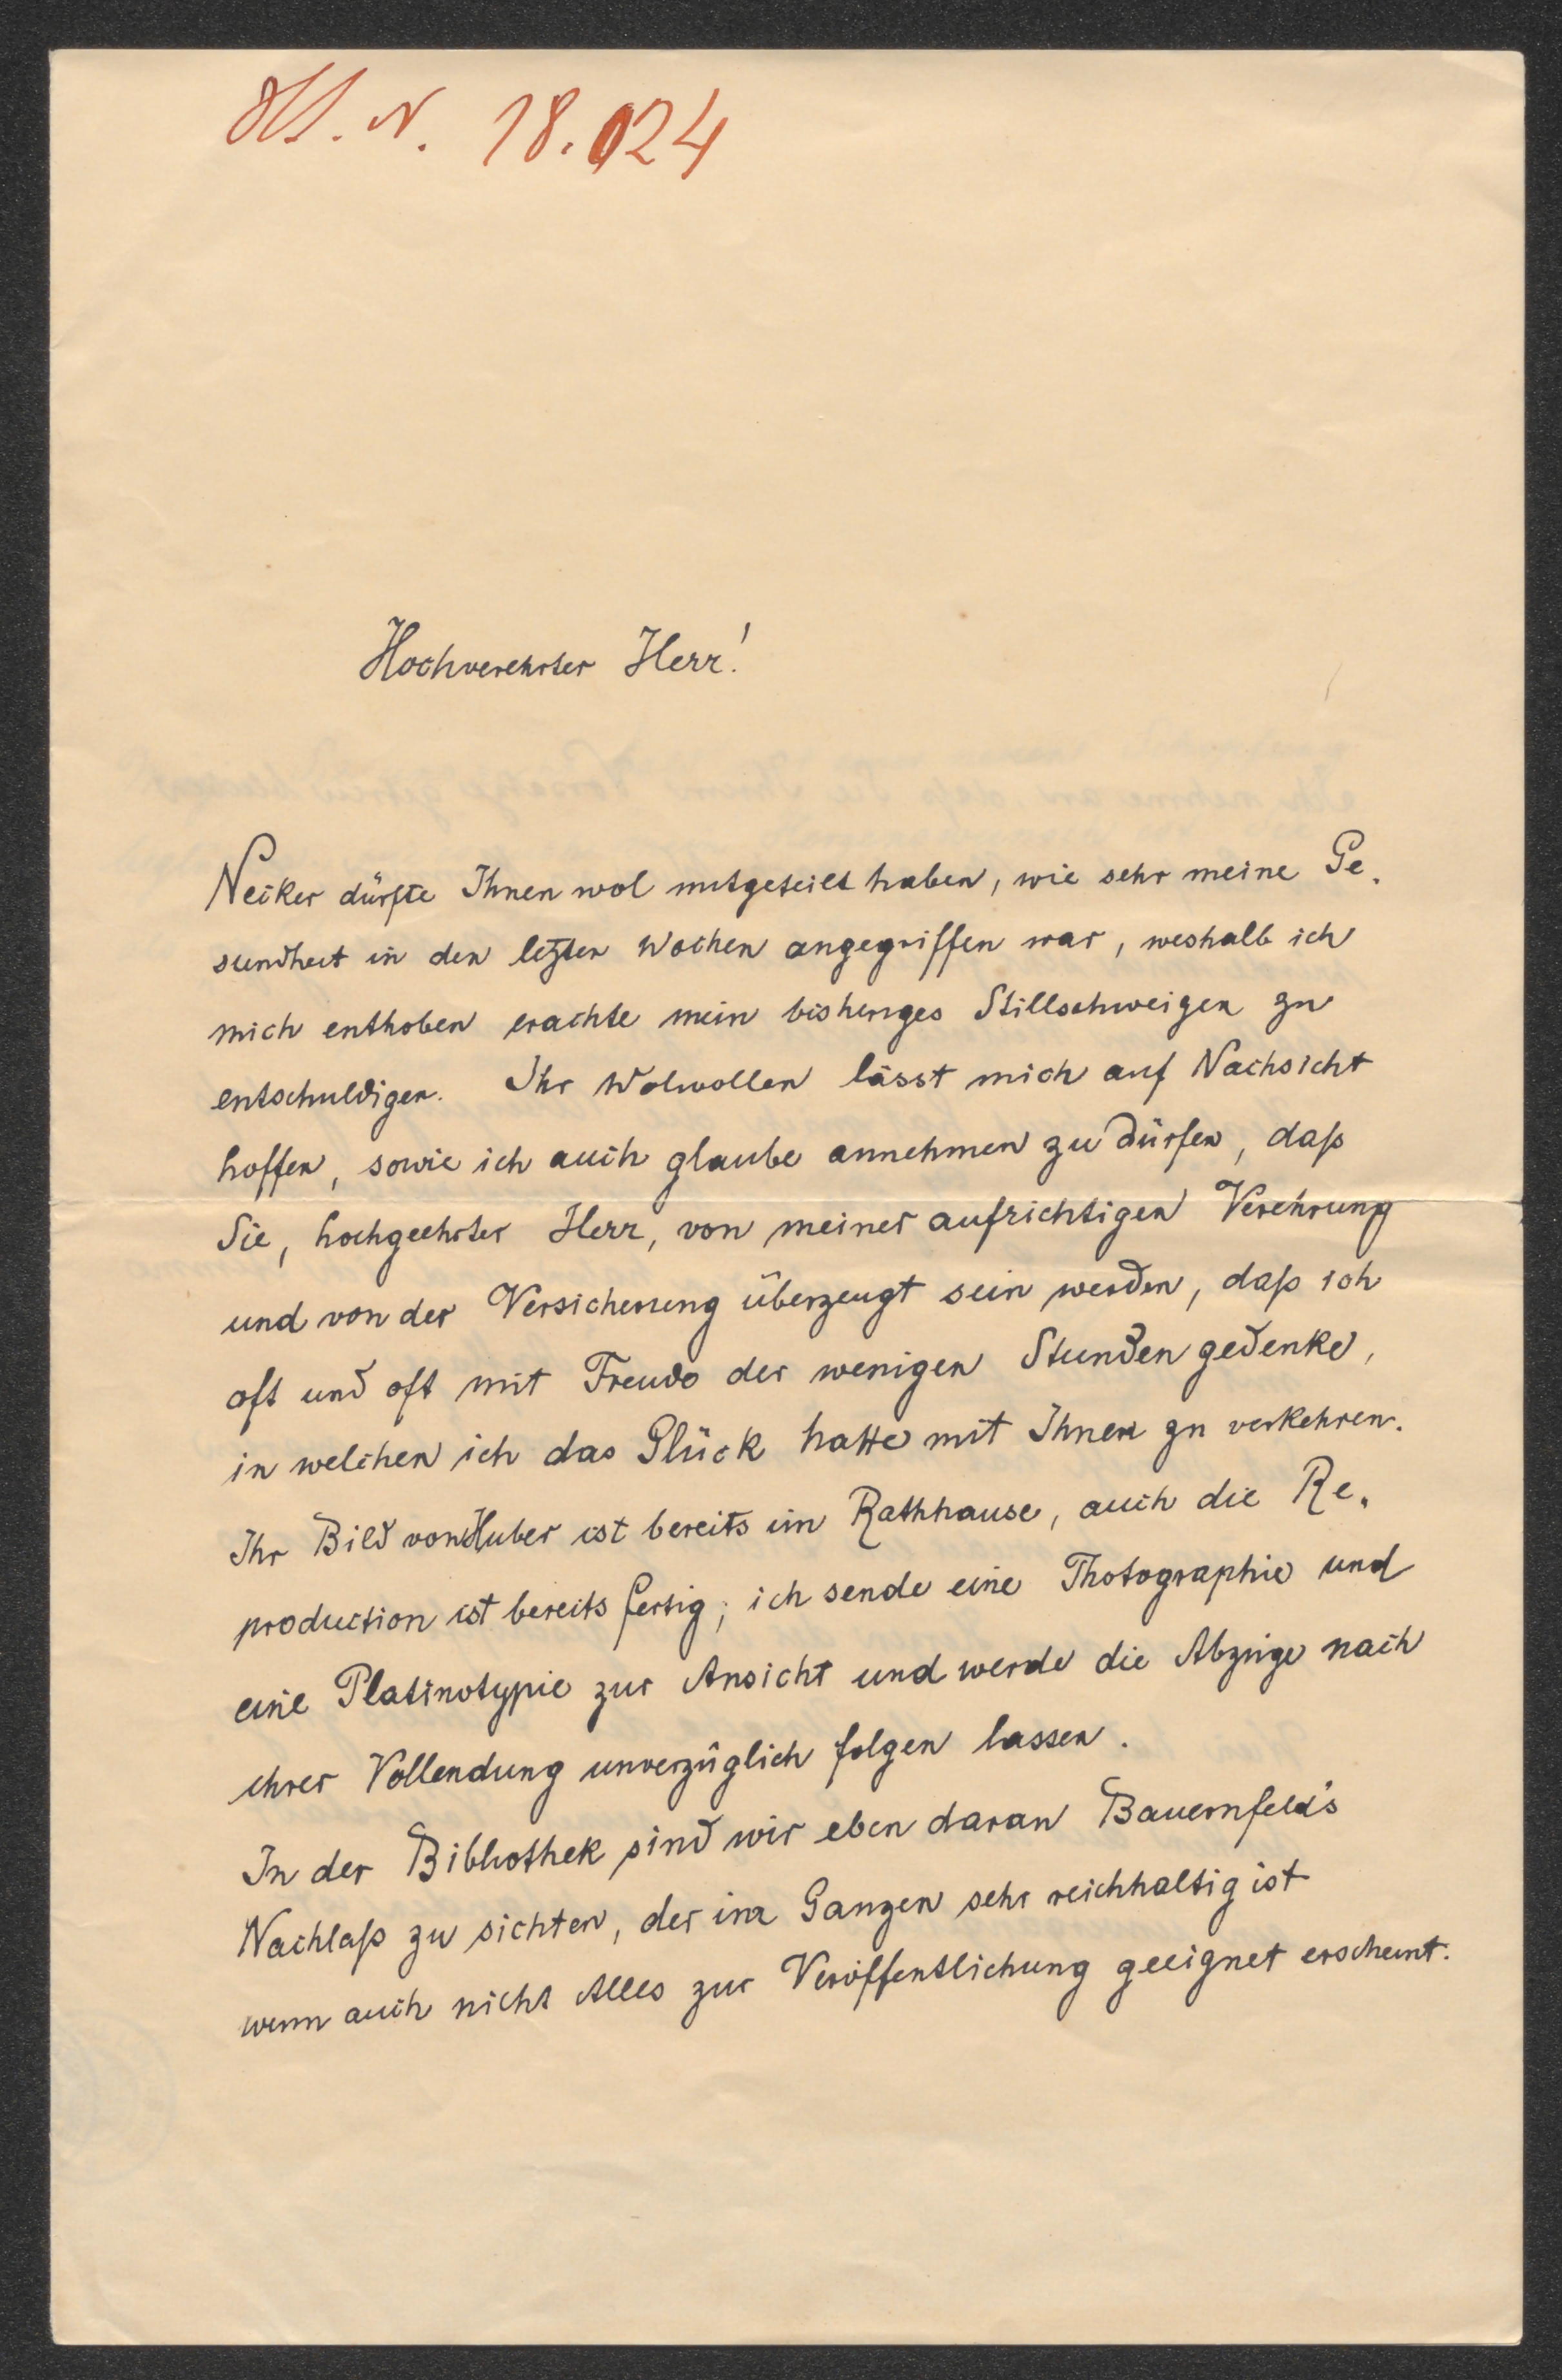 HS. N. 18.024
Hochverehrter Herr!
Necker dürfte Ihnen wol mitgeteilt haben, wie sehr meine Ge-
sundheit in den letzten Wochen angegriffen war, weshalb ich
mich enthoben erachte mein bisheriges Stillschweigen zu
entschuldigen. Ihr Wolwollen lässt mich auf Nachsicht
hoffen, sowie ich auch glaube annehmen zu dürfen, daß
Sie, hochgeehrter Herr, von meiner aufrichtigen Verehrung
und von der Versicherung überzeugt sein werden, daß ich
oft und oft mit Freude der wenigen Stunden gedenke,
in welchen ich das Glück hatte mit Ihnen zu verkehren.
Ihr Bild von Huber ist bereits im Rathhause, auch die Re-
production ist bereits fertig; ich sende eine Photographie und
eine Platinotypie zur Ansicht und werde die Abzüge nach
ihrer Vollendung unverzüglich folgen lassen.
In der Bibliothek sind wir eben daran Bauernfeld's
Nachlaß zu sichten, der im Ganzen sehr reichhaltig ist
wenn auch nicht Alles zur Veröffentlichung geeignet erscheint.